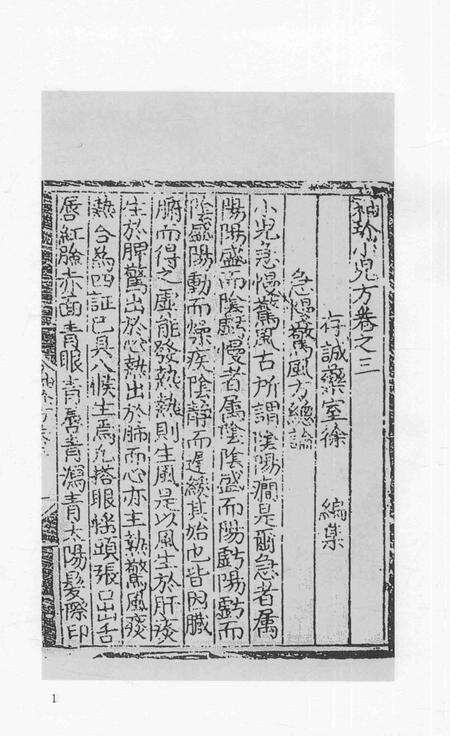 袖珍小兒方卷之三
存誠藥室徐　編集
急慢驚風方總論
小兒急慢驚風古所謂陰陽癇是爾急者属
陽陽盛而陰虧慢者属陰陰盛而陽虧陽虧而
陰盛陽動而燥疾陰静而遲緩其始也皆因臟
腑而得之虛能發熱熱則生風是以風生於肝痰
生於脾驚出於心熱出於肺而心亦主熱驚風痰
熱合為四証已具八候生焉凡搭眼揺頭張口出舌
唇紅臉赤面青眼青唇青瀉青太陽髮際印
1